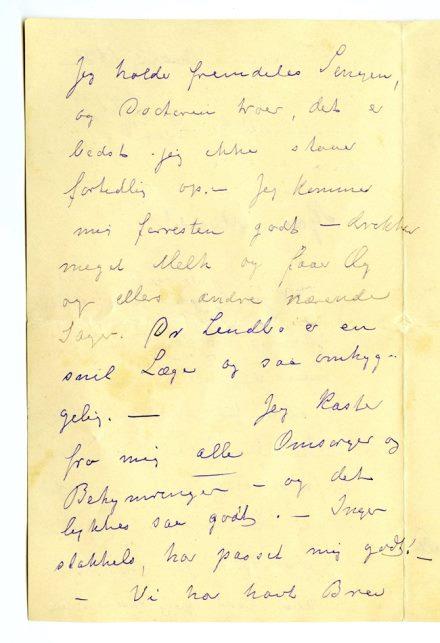 Jeg holder fremdeles Sengen,
og Doctoren troer, det er
bedst jeg ikke staaer
fortidlig op. – Jeg kommer
mig forresten godt – drikker
meget Melk og faar Æg
og ellers andre nærende
Sager. Dr er en
snil Læge og saa omhyg-
gelig. — Jeg kaster
fra mig alle Omsorger og
Bekymringer – og det
lykkes saa godt. – Inger
stakkels, har passet mig godt! –
– Vi har havt Brev